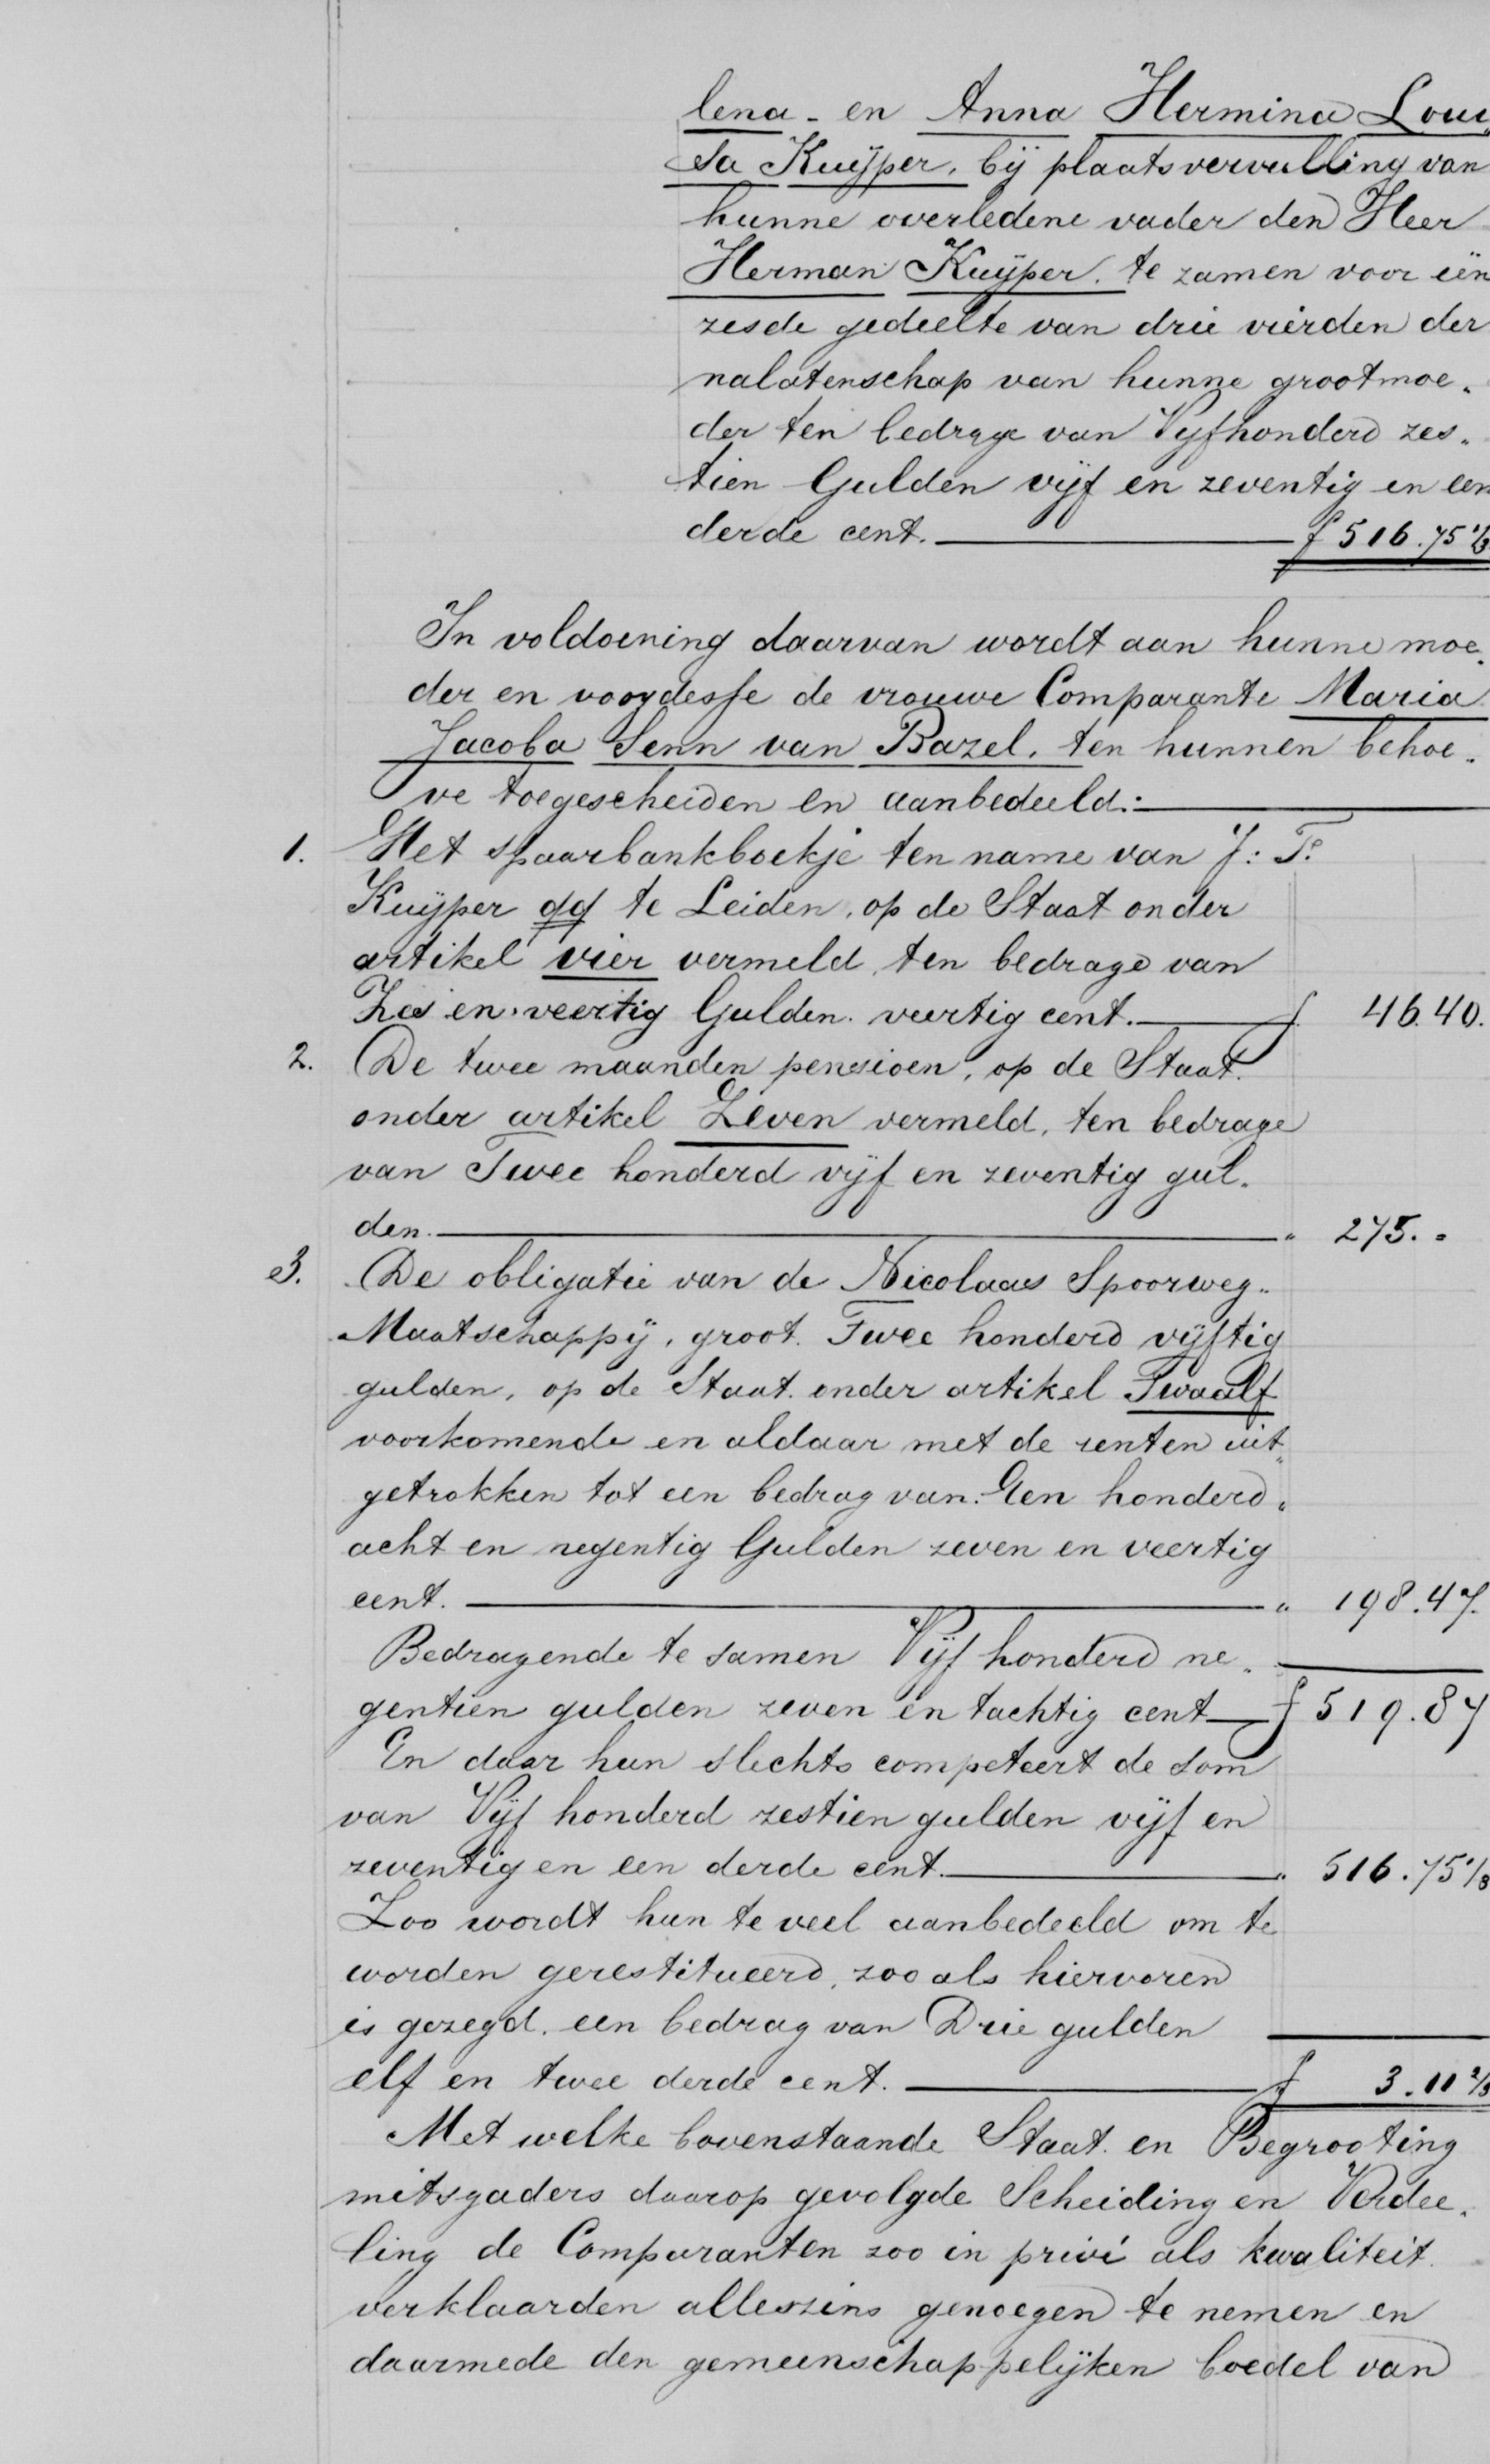 lena - en Anna Hermina Loui„
sa Kuijper, bij plaatsvervulling van
hunne overledene vader den Heer
Herman Kuijper. te zamen voor één
zesde gedeelte van drie vierden der
nalatenschap van hunne grootmoe„
der ten bedrage van Vijfhonderd zes„
tien Gulden vijf en zeventig en een
derde cent. — f 516.75 1/3
In voldoening daarvan wordt aan hunne moe„
der en voogdesse de vrouwe Comparante Maria
Jacoba Senn van Bazel, ten hunnen behoe„
ve toegescheiden en aanbedeeld: —
1. Het spaarbankboekje ten name van J: T.
Kuijper qq te Leiden, op de Staat onder
artikel vier vermeld, ten bedrage van
Zes en veertig Gulden veertig cent. — f 46.40.
2. De twee maanden pensioen, op de Staat
onder artikel Zeven vermeld, ten bedrage
van Twee honderd vijf en zeventig gul„
den. — „ 275. „
3. De obligatie van de Nicolaas Spoorweg„
Maatschappij, groot Twee honderd vijftig
gulden, op de Staat onder artikel Twaalf
voorkomende en aldaar met de renten uit„
getrokken tot een bedrag van Een honderd„
acht en negentig Gulden zeven en veertig
cent. — „ 198.47.
Bedragende te samen Vijf honderd ne„
gentien gulden zeven en tachtig cent — f 519.87
En daar hun slechts competeert de som
van Vijf honderd zestien gulden vijf en
zeventig en een derde cent. — „ 516.75 1/3
Zoo wordt hun te veel aanbedeeld om te
worden gerestitueerd, zoo als hiervoren
is gezegd, een bedrag van Drie gulden
elf en twee derde cent. — f 3.11 2/3
Met welke bovenstaande Staat en Begrooting
mitsgaders daarop gevolgde Scheiding en Verdee„
ling de Comparanten zoo in privé als kwaliteit
verklaarden alleszins genoegen te nemen en
daarmede den gemeenschappelijken boedel van